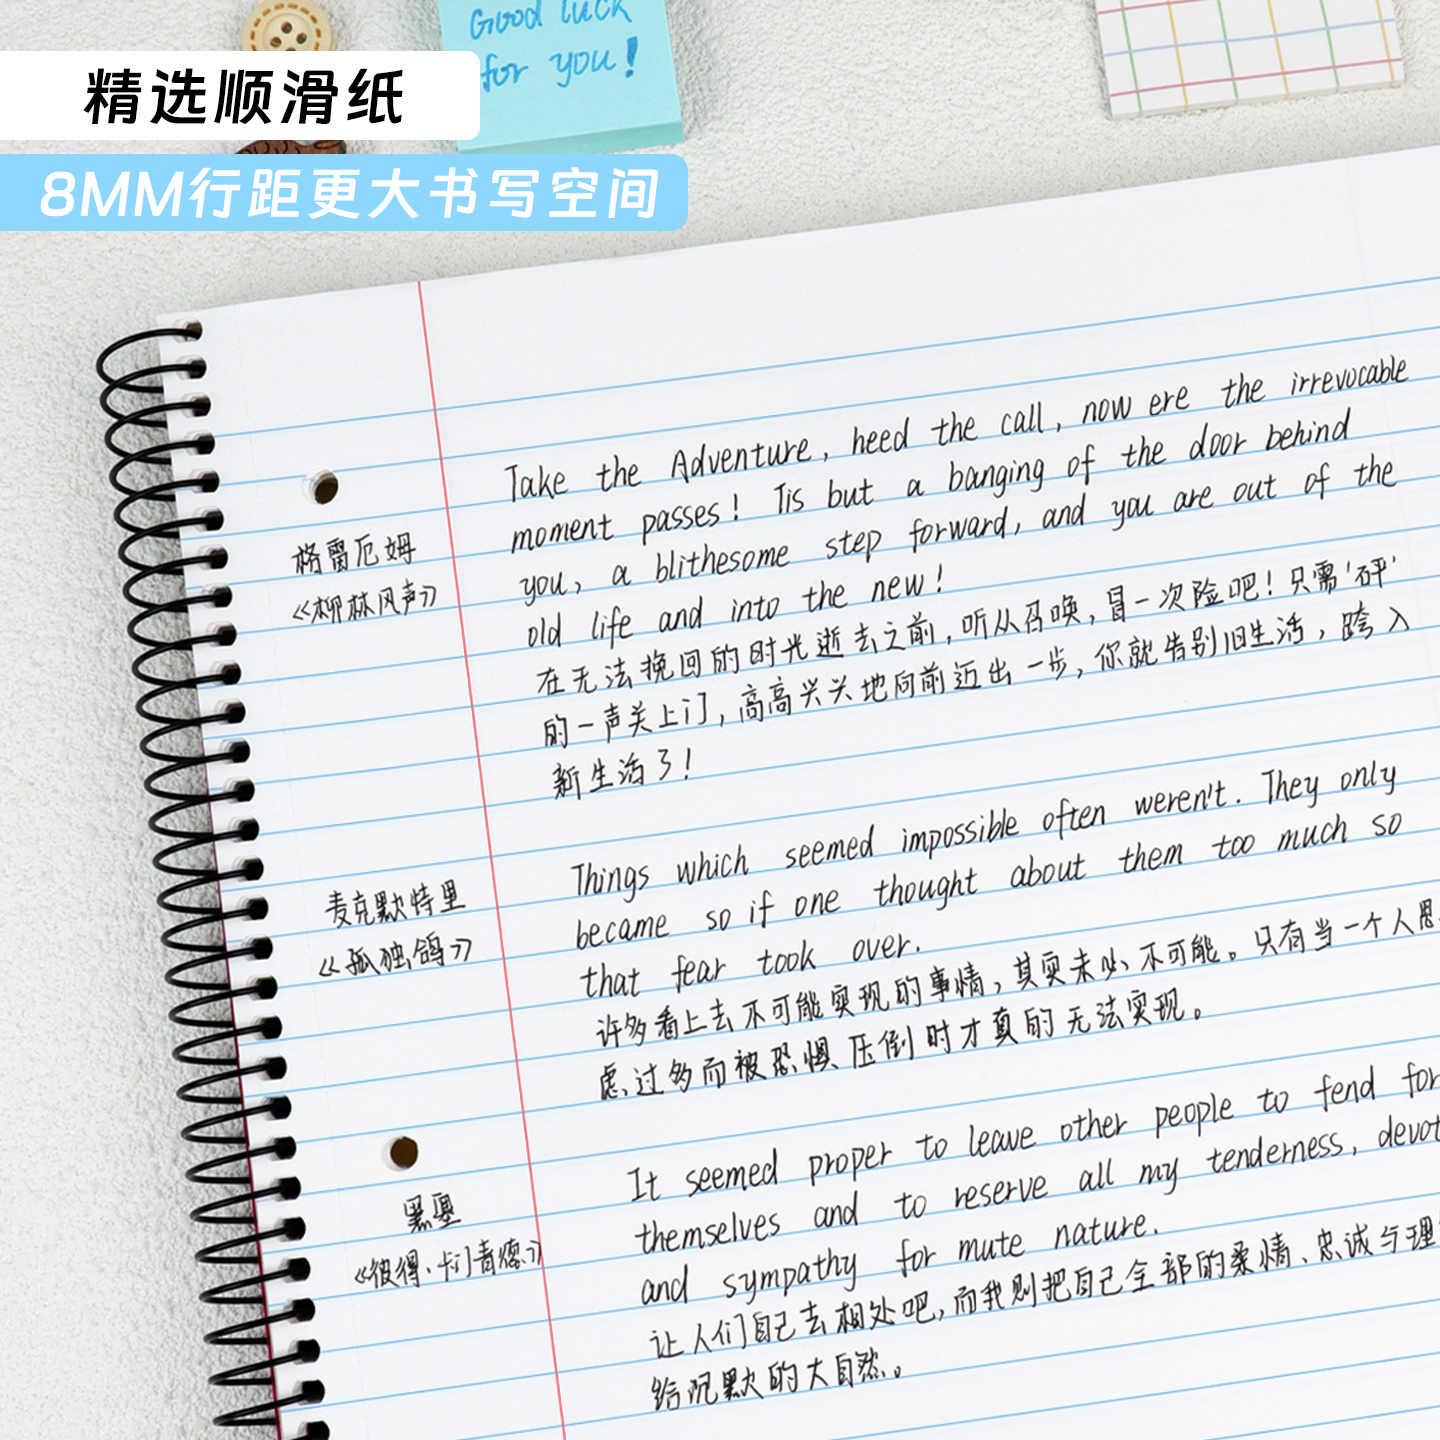 Good luck
for you!
精选顺滑纸
8MM行距更大书写空间
Take the Adventure, heed the call, now ere the irrevocable
moment passes! Tis but a banging of the door behind
you, a blithesome step forward, and you are out of the
old life and into the new!
格雷厄姆
《柳林风声》
在无法挽回的时光逝去之前,听从召唤,冒一次险吧!只需'砰'
的一声关上门,高高兴兴地向前迈出一步,你就告别旧生活,跨入
新生活了!
Things which seemed impossible often weren't. They only
became so if one thought about them too much so
that fear took over.
麦克默特里
《孤独鸽》
许多看上去不可能实现的事情,其实未必不可能。只有当一个人思
虑过多而被恐惧压倒时才真的无法实现。
It seemed proper to leave other people to fend for
themselves and to reserve all my tenderness, devot
and sympathy for mute nature.
黑塞
《彼得·卡门青德》
让人们自己去相处吧,而我则把自己全部的柔情、忠诚与理
给沉默的大自然。